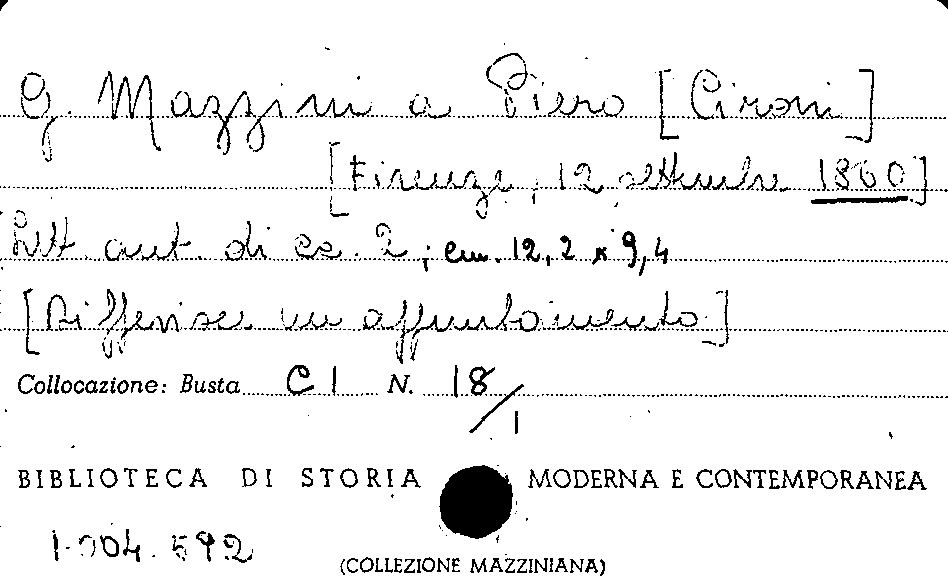 G. Mazzini a Piero [Cironi]
[Firenze, 12 settembre 1860]
Lett. aut. di cc. 2; cm. 12,2 x 9,4
[Differisce un appuntamento]
Collocazione: Busta C I N. 18/1
BIBLIOTECA DI STORIA MODERNA E CONTEMPORANEA
1.004.592
(COLLEZIONE MAZZINIANA)